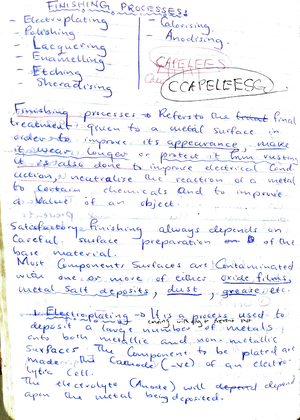 FINISHING PROCESSES
- Electroplating
- Polishing
- Lacquering
- Enamelling
- Etching
- Sheradising
- Calorising
- Anodising.
CAPELEES
CCAPELEESG
Finishing processes → Refers to the final
treatment given to a metal surface in
order to improve its appearance, make
it wear longer or protect it from rusting
It is also done to improve electrical Cond
uction, neutralize the reaction of a metal
to Certain chemicals and to improve
a value of an object.
Satisfactory finishing always depends on
Careful surface preparation of the
base material.
Most Components Surfaces are Contaminated
with one or more of either oxide films,
metal Salt deposits, dust, grease etc.
1. Electroplating → It is a process used to
deposit a large number of metals
onto both metallic and non-metallic
Surfaces. The Component to be plated are
made the Cathode (-ve) of an electro-
lytic Cell.
The electrolyte (Anode) will deposit
upon the metal being deposited.